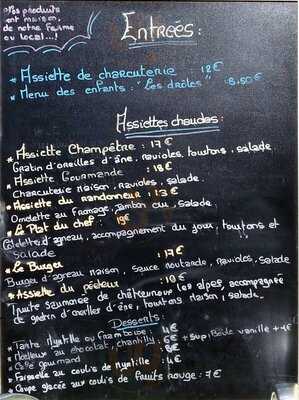 Nos produits
sont maison,
de notre ferme
ou local...!
Entrées:
* Assiette de charcuterie 12€
* Menu des enfants: "Les drôles" 8.50€
Assiettes chaudes:
* Assiette Champêtre: 17€
Gratin d'oreilles d'âne, ravioles, tourtons, salade
* Assiette Gourmande: 18€
Charcuterie maison, Ravioles, salade.
* Assiette du randonneur: 13€
Omelette au fromage, jambon cru, salade.
* Le Plat du chef: 19€
Côtelettes d'agneau, accompagnement du jour, tourtons et
salade
* Le Burger: 17€
Burger d'agneau maison, sauce moutarde, ravioles, salade
* Assiette du pêcheur: 18€
Truite saumonée de châteauroux les alpes, accompagnée
de gratin d'oreilles d'âne, tourtons maison, salade.
Desserts:
* Tarte Myrtille ou framboise: 4€
* Moelleux au chocolat, chantilly: 6€ + sup: Boule vanille +1€
* Café gourmand 8€
* Faisselle au coulis de myrtille: 4€
* Coupe glacée aux coulis de fruits rouge: 7€